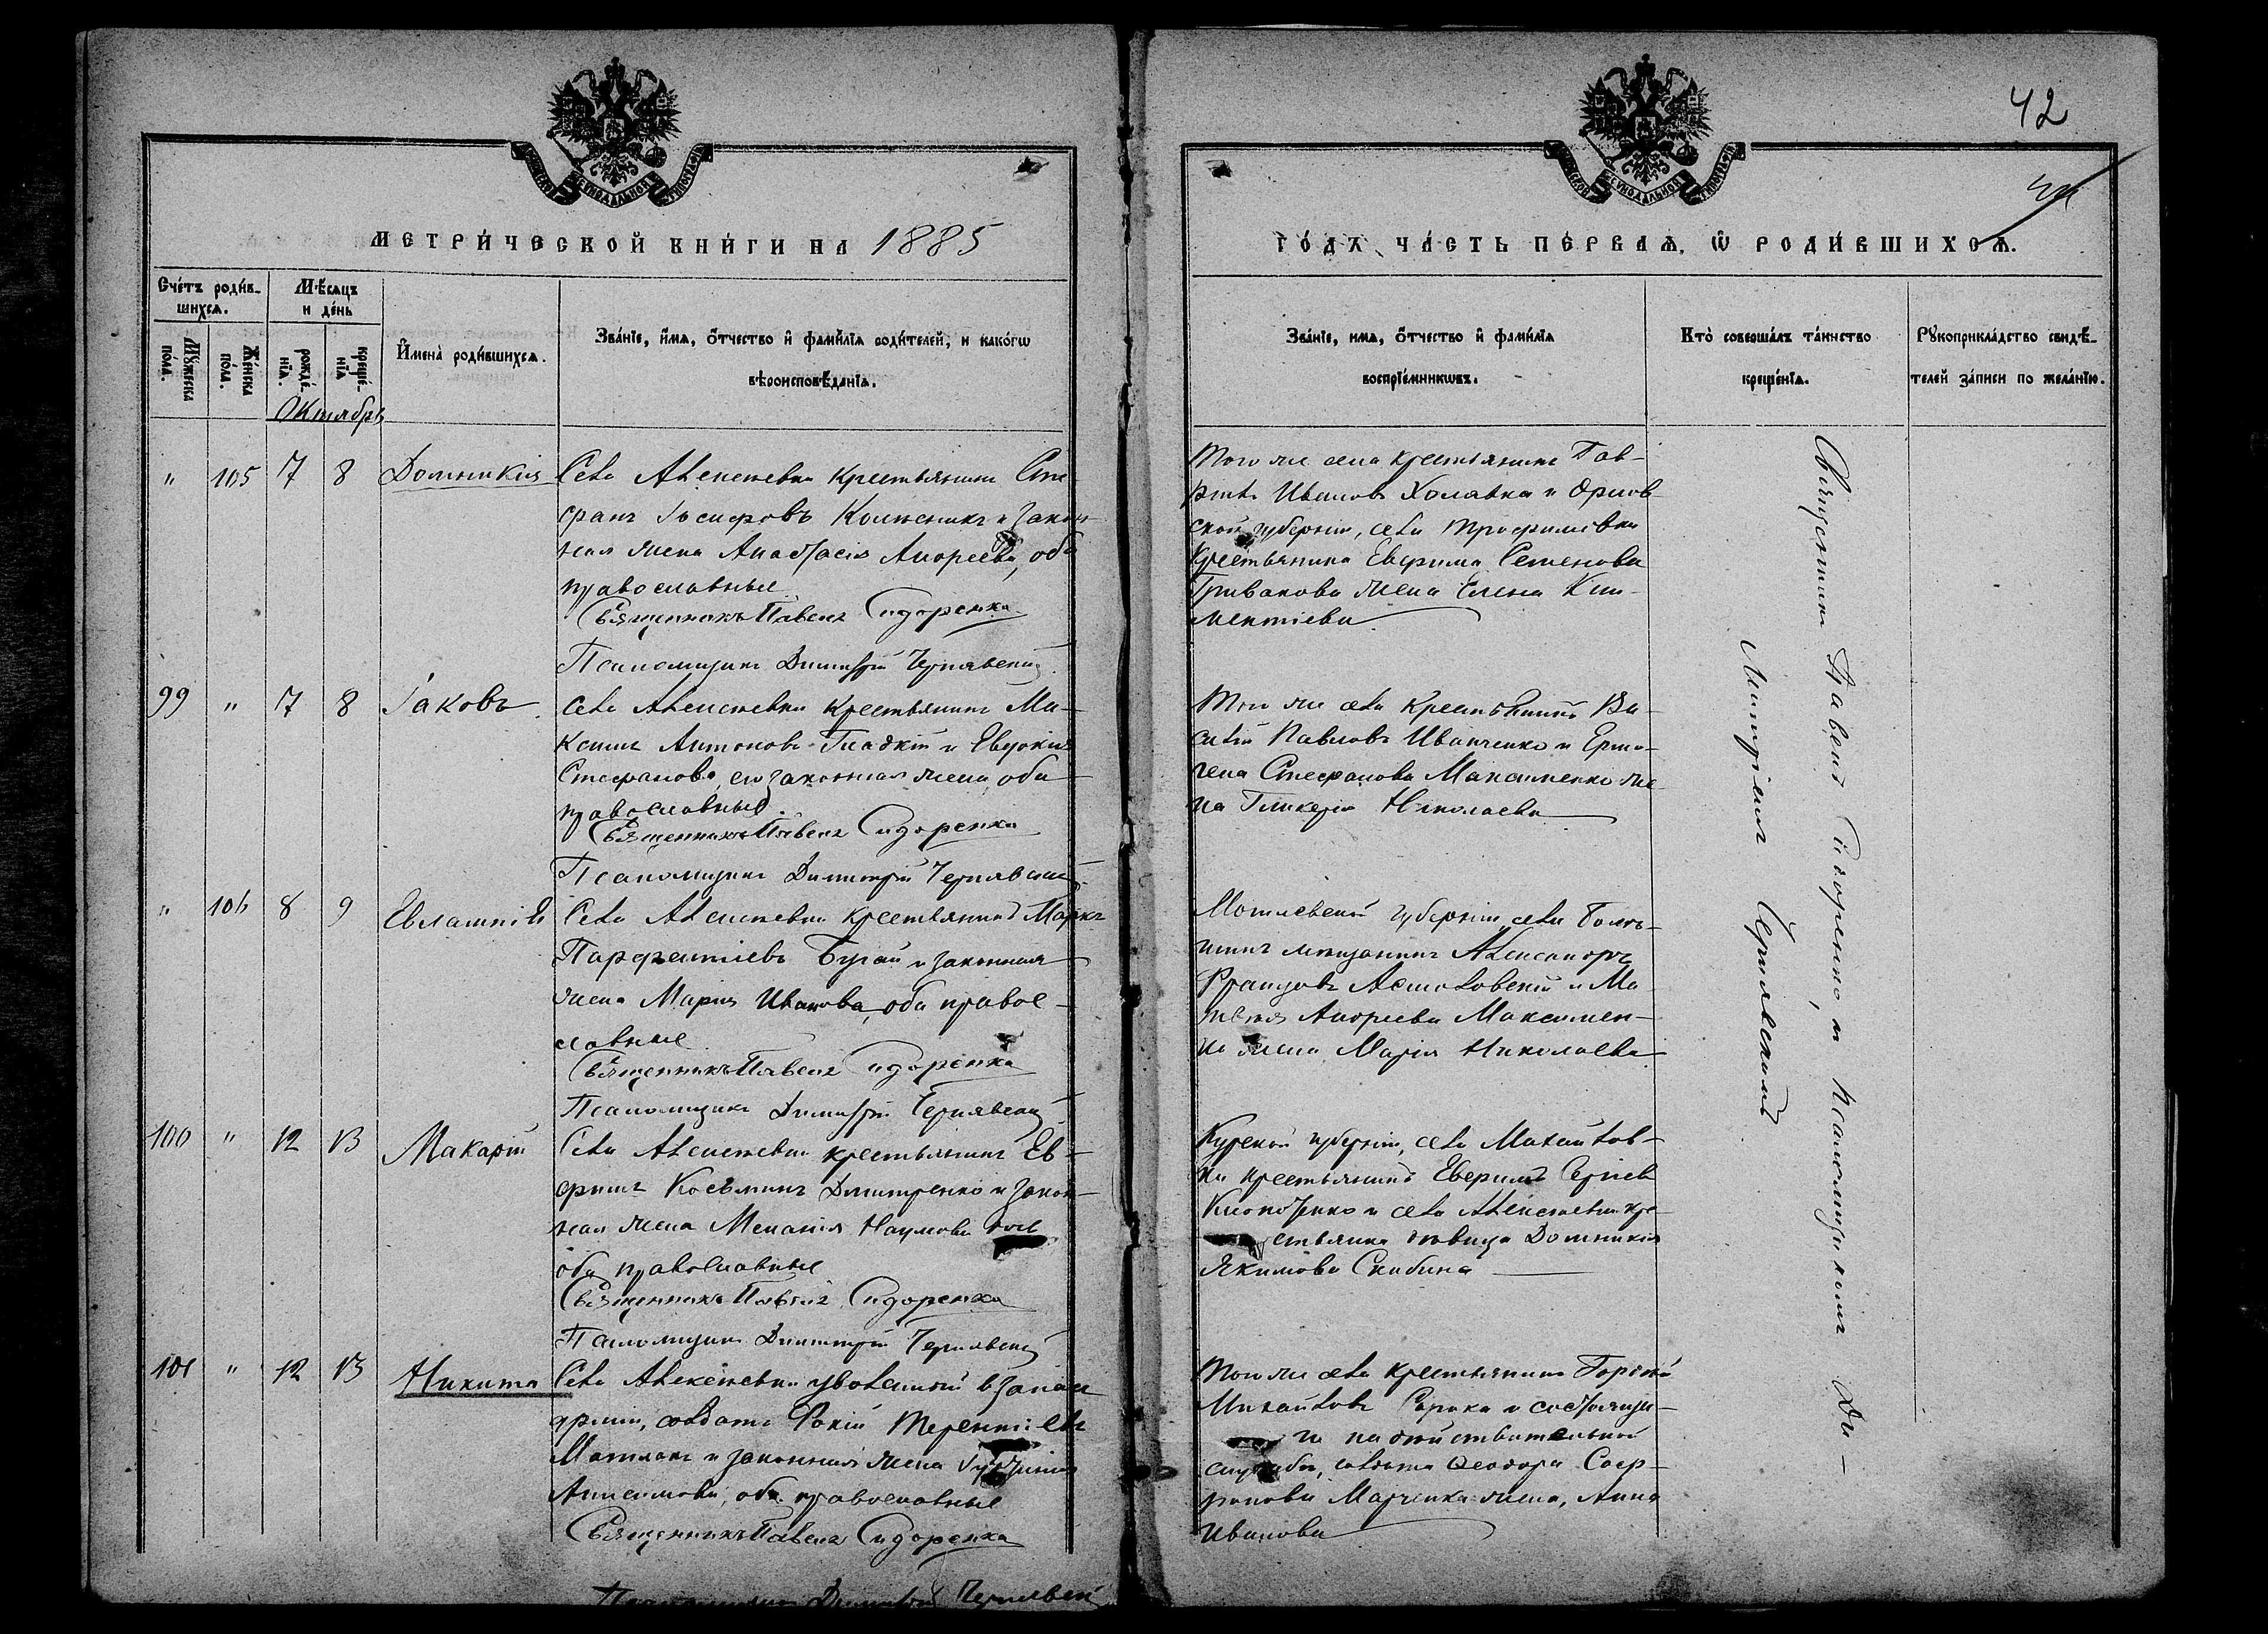 42
МЕТРИЧЕСКОЙ КНИГИ НА 1885
ГОДА, ЧАСТЬ ПЕРВАЯ, Ѿ РОДИВШИХСЯ.
Счетъ родив-
шихся.
Мужеска пола.
Женска пола.
Мѣсяцъ
и день
рожденія.
крещенія
Имена родившихся.
Званіе, имя, отчество и фамилія родителей, и какогѡ
вѣроисповѣданія.
Званіе, имя, отчество и фамилія
воспріемникѡвъ.
Кто совершалъ таинство
крещенія.
Рукоприкладство свидѣ-
телей записи по желанію.
Октябрь
" 105 7 8 Домникія
Села Алексѣевки крестьянинъ Сте-
фанъ Іосифовъ Колѣсникъ и закон-
ная жена Анастасія Андреева, оба
православные
Священникъ Павелъ Сидоренко
Псаломщикъ Димитрій Чернявскій
Того же села крестьянинъ Гав-
ріилъ Ивановъ Холявка и Орлов-
ской губерніи, села Трофимовки
крестьянина Евфима Семенова
Гривакова жена Елена Кли-
ментіева
99 " 7 8 Іаковъ
Села Алексѣевки крестьянинъ Ма-
ксимъ Антоновъ Гладкій и Евдокія
Стефанова, его законная жена, оба
православные
Священникъ Павелъ Сидоренко
Псаломщикъ Димитрій Чернявскій
Того же села крестьянинъ Ва-
силій Павловъ Иванченко и Ермо-
гена Стефанова Максименко же-
на Гликерія Николаева
" 106 8 9 Евлампія
Села Алексѣевки крестьянинъ Маркъ
Парфентіевъ Бугай и законная
жена Марія Иванова, оба право-
славные
Священникъ Павелъ Сидоренко
Псаломщикъ Димитрій Чернявскій
Могилевской губерніи, села
мѣщанинъ Александръ
Францовъ и Ма-
твѣя Андреева Максимен-
ко жена Марія Николаева
100 " 12 13 Макарій
Села Алексѣевки крестьянинъ Ев-
фимъ Косьминъ Дмитренко и закон-
ная жена Меланія Наумова
оба православные
Священникъ Павелъ Сидоренко
Псаломщикъ Димитрій Чернявскій
Курской губерніи, села Михайлов-
ки крестьянинъ Евфимъ Сергіевъ
и села Алексѣевки кре-
стьянка дѣвица Домникія
Якимова Скибина
101 " 12 13 Никита
Села Алексѣевки уволенный въ запасъ
арміи, солдатъ Фокій Терентіевъ
Матлахъ и законная жена
Анисимова, оба православные
Священникъ Павелъ Сидоренко
Псаломщикъ Димитрій Чернявскій
Того же села крестьянинъ Гордѣй
Михайловъ Сорока и состоящи-
го на дѣйствительной
службѣ, солдата Ѳеодора Соф-
ронова Марченка жена, Анна
Иванова
Священникъ Павелъ Сидоренко, съ Псаломщикомъ Ди-
митріемъ Чернявскимъ